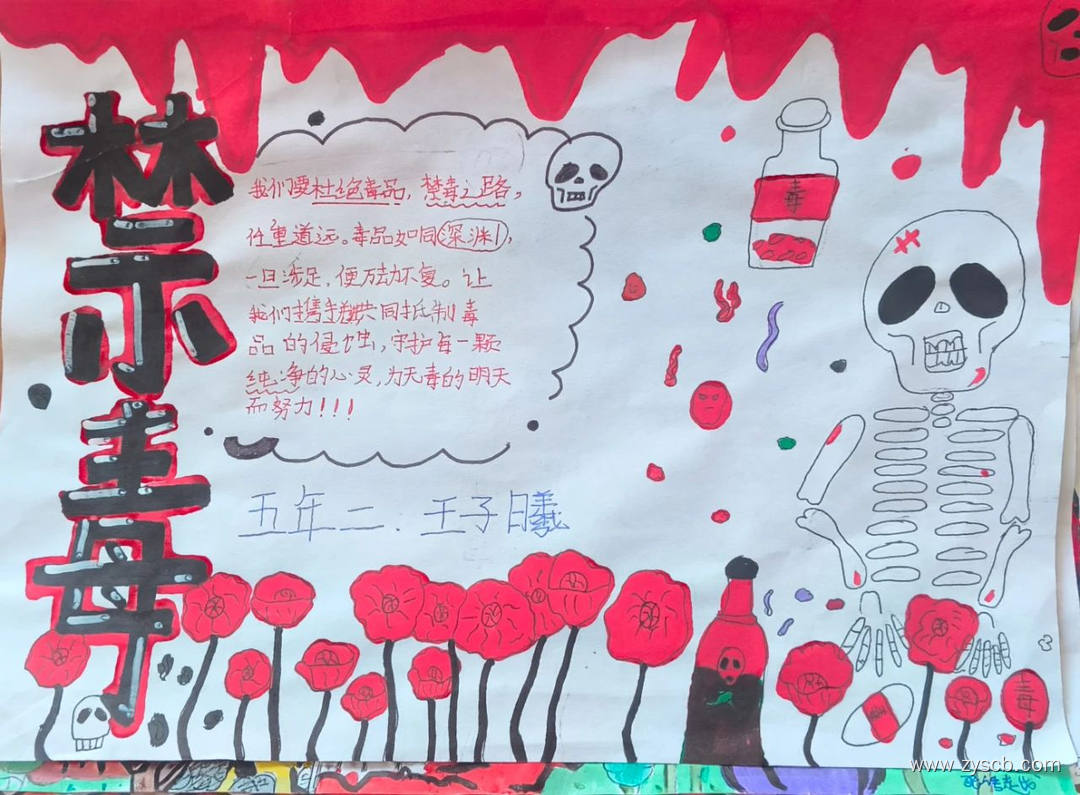 禁毒
我们要杜绝毒品，禁毒之路，
任重道远。毒品如同深渊，
一旦涉足，便万劫不复。让
我们携手共同抵制毒
品的侵蚀，守护每一颗
纯净的心灵，为无毒的明天
而努力！！！
五年二．王子曦
毒
毒
www.zyscb.com